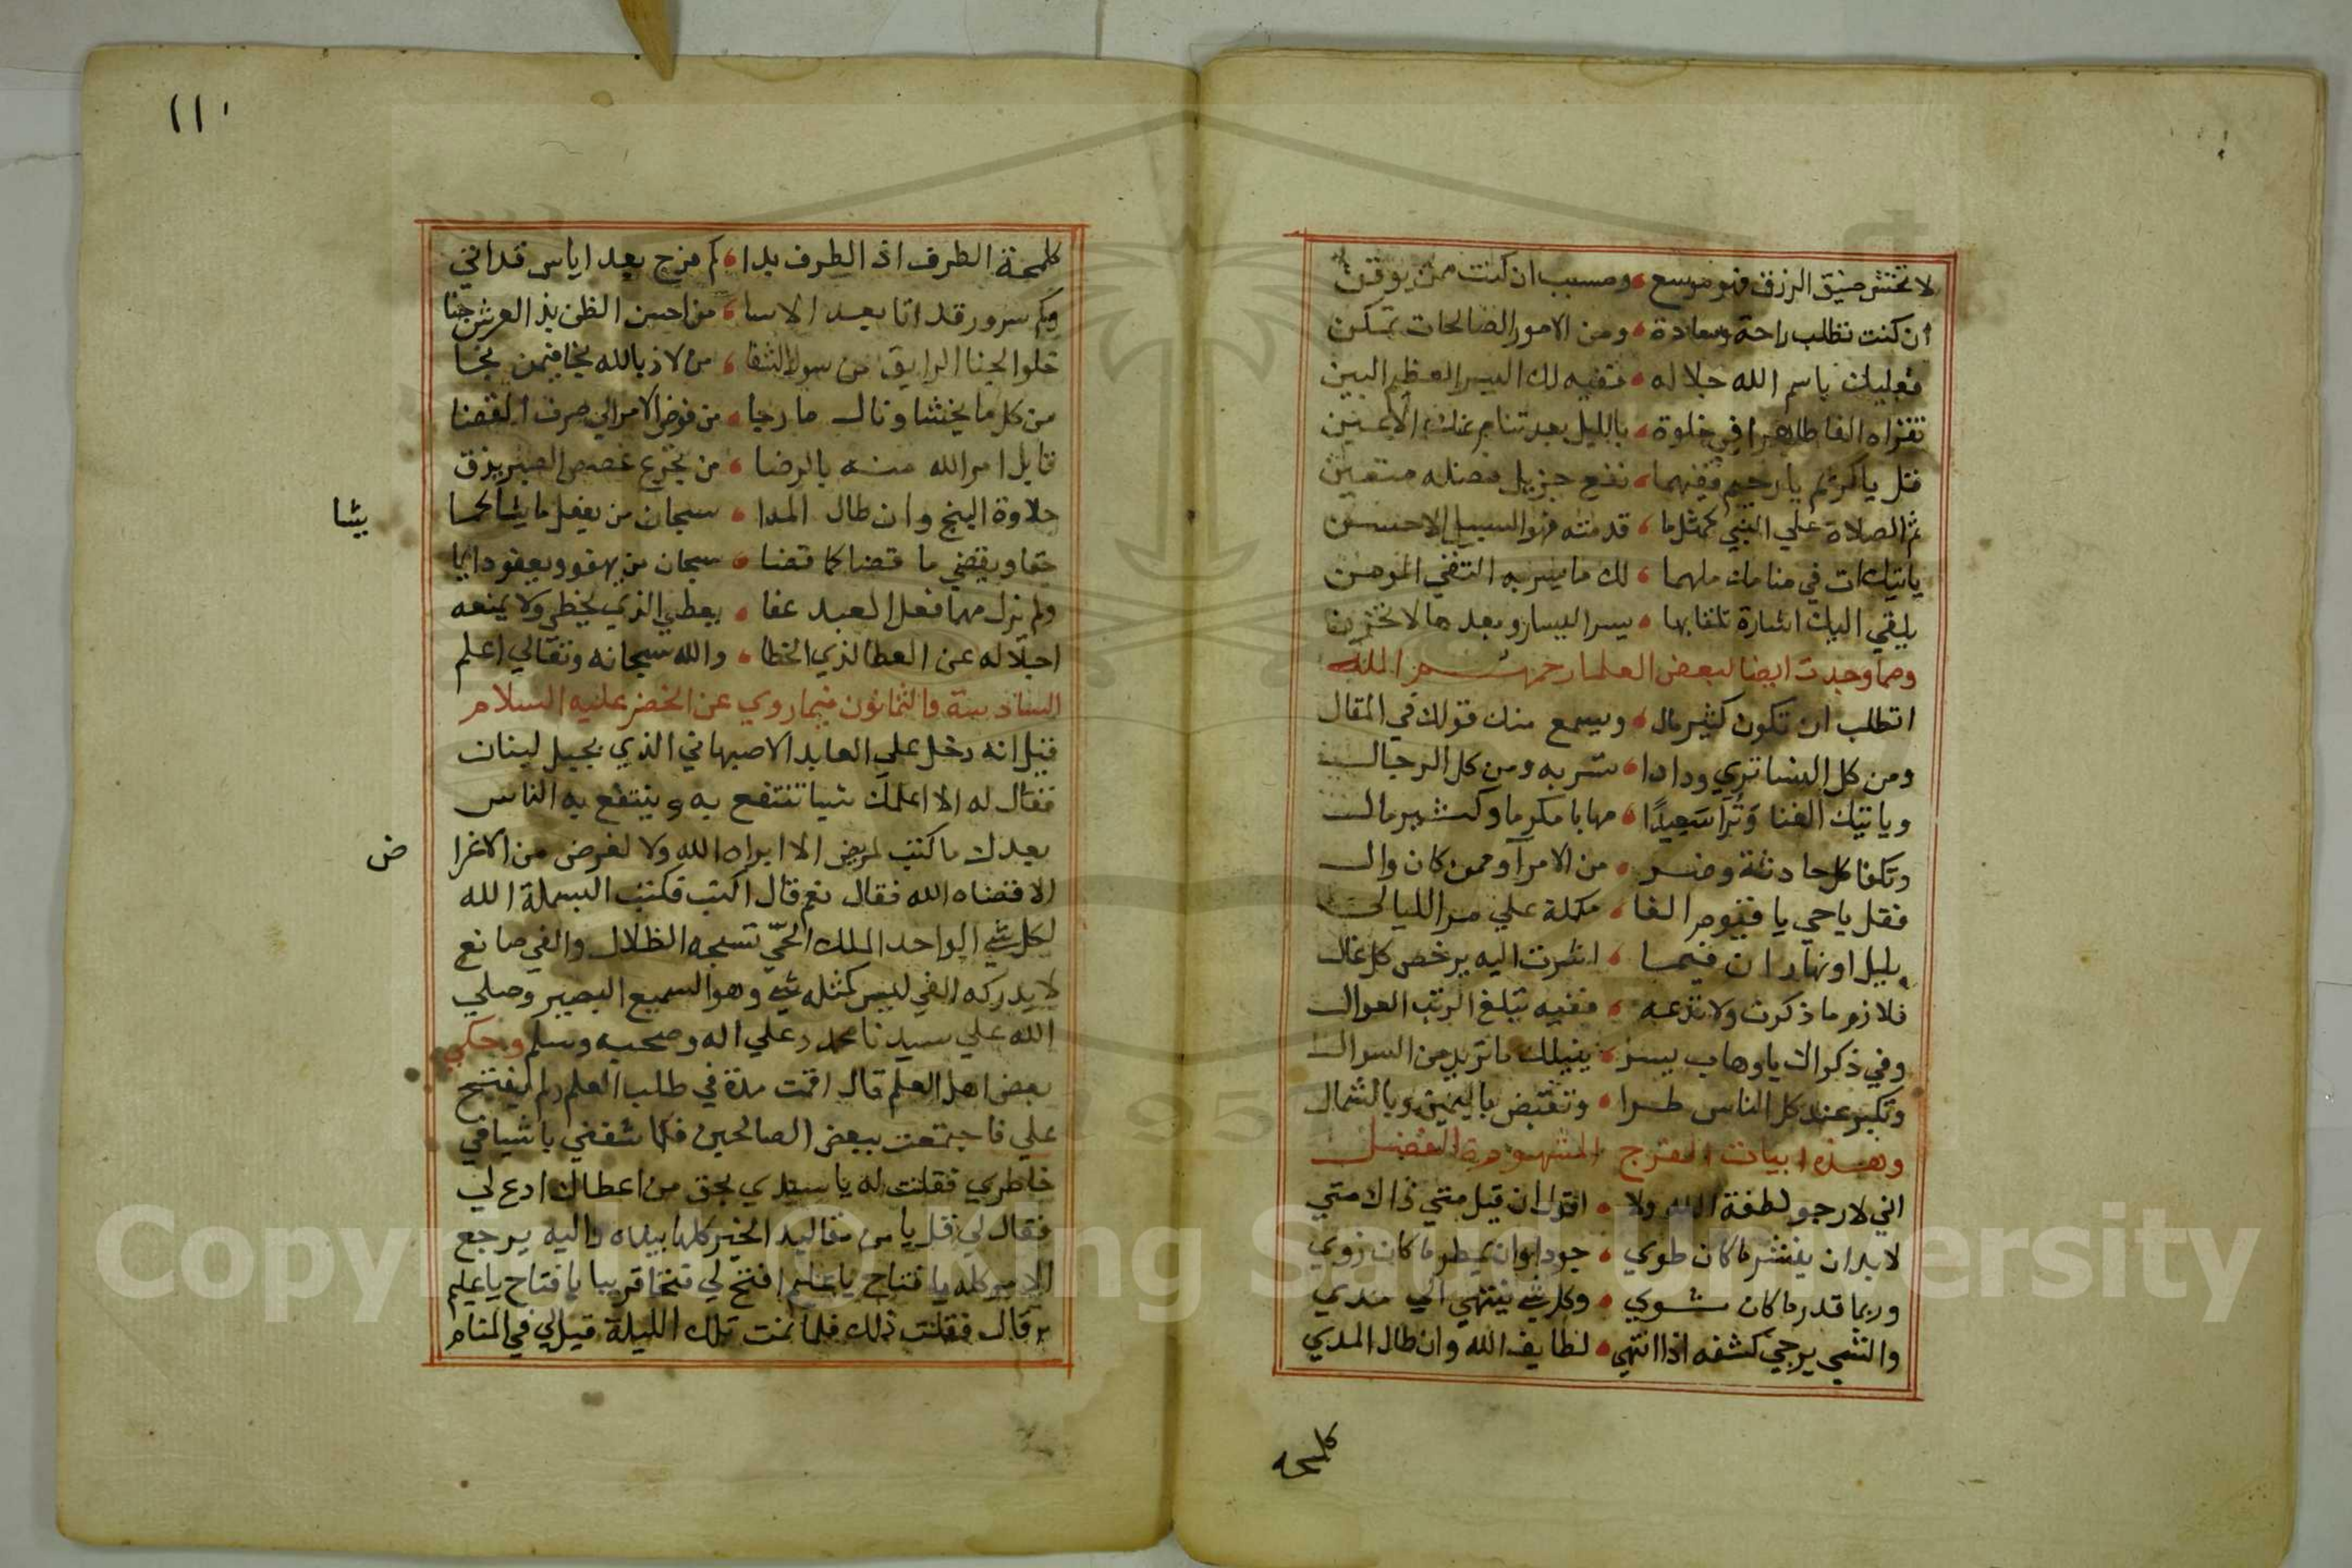 لا تخش ضيق الرزق فهو موسع ومسبب ان كنت ممن يوقن
ان كنت تطلب راحة وسعادة ومن الامور الصالحات تمكن
فعليك باسم الله جلاله ففيه لك اليسر العظيم البين
تقراه الفا طاهرا في خلوة بالليل بعد تنام عنك الاعين
قل يا كريم يا رحيم ففيهما نفع جزيل فضله متعين
ثم الصلاة علي النبي كمثل ما قدمته فهو السبيل الاحسن
ياتيك ات في منامك ملهما لك ما يسر به التقي المومن
يلقي اليك اشارة تلقا بها يسر اليسار وبعدها لا تحزن
ومما وجدت ايضا لبعض العلما رحمهم الله
اتطلب ان تكون كثير مال ويسمع منك قولك في المقال
ومن كل النسا تري ودادا تسر به ومن كل الرجال
وياتيك الغنا وترا سعيدا مهابا مكرما وكثير مال
وتكفا كل حادثة وضر من الامرا وممن كان وال
فقل يا حي يا قيوم الفا مكملة علي مر الليالي
بليل او نهار ان فيهما اشرت اليه يرخص كل غال
فلازم ما ذكرت ولا تدعه ففيه تبلغ الرتب العوال
وفي ذكراك يا وهاب يسر ينيلك ما تريد من السوال
وتكبر عند كل الناس طرا وتقبض باليمين وبالشمال
وهذه ابيات الفرج المشهورة الفضل
اني لارجو لطفة الله ولا اقول ان قيل متي ذاك متي
لا بد ان ينشر ما كان طوي جودا وان يمطر ما كان زوي
وربما قدر ما كان شوي وكل شي ينتهي الي مدي
والشي يرجي كشفه اذا انتهي لطايف الله وان طال المدي
كلمحه
١١٠
كلمحة الطرف اذ الطرف بدا كم فرج بعد اياس قد اتي
وكم سرور قد اتا بعد الاسا من احسن الظن بذ العرش جنا
حلوا الجنا الرايق من سوك الثقا من لاذ بالله نجا فيمن نجا
من كل ما يخشا ونال ما رجا من فوض الامر الي صرف القضا
قابل امر الله منه بالرضا من يجرع غصص الصبر يذق
حلاوة النجح وان طال المدا سبحان من يفعل ما يشا كما
يشا
حقا ويقضي ما قضا كما قضا سبحان من يهفو ويعفو دايما
ولم نزل مهما فعل العبد عفا يعطي الذي يخطي ولا يمنعه
اجلاله عن العطا لذي الخطا والله سبحانه وتعالي اعلم
السادسة والثمانون فيما روي عن الخضر عليه السلام
قيل انه دخل علي العابد الاصبهاني الذي بجبل لبنان
فقال له الا اعلمك شيا تنتفع به وينتفع به الناس
بعدك ما كتب لمريض الا ابراه الله ولا لغرض من الاغرا
ض
الا قضاه الله فقال نعم قال اكتب فكتب البسملة الله
لكل شي الواحد الملك الحي تسبحه الظلال والفي صانع
لا يدركه الفي ليس كمثله شي وهو السميع البصير وصلي
الله علي سيدنا محمد وعلي اله وصحبه وسلم وحكي
بعض اهل العلم قال اقمت مدة في طلب العلم ولم يفتح
علي فاجتمعت ببعض الصالحين فكاشفني باشيا في
خاطري فقلت له يا سيدي بحق من اعطاك ادع لي
فقال لي قل يا من مقاليد الخير كلها بيده واليه يرجع
الامر كله يا فتاح يا عليم افتح لي فتحا قريبا يا فتاح يا عليم
قال فقلت ذلك فلما نمت تلك الليلة قيل لي في المنام
Copyright © King Saud University
1957